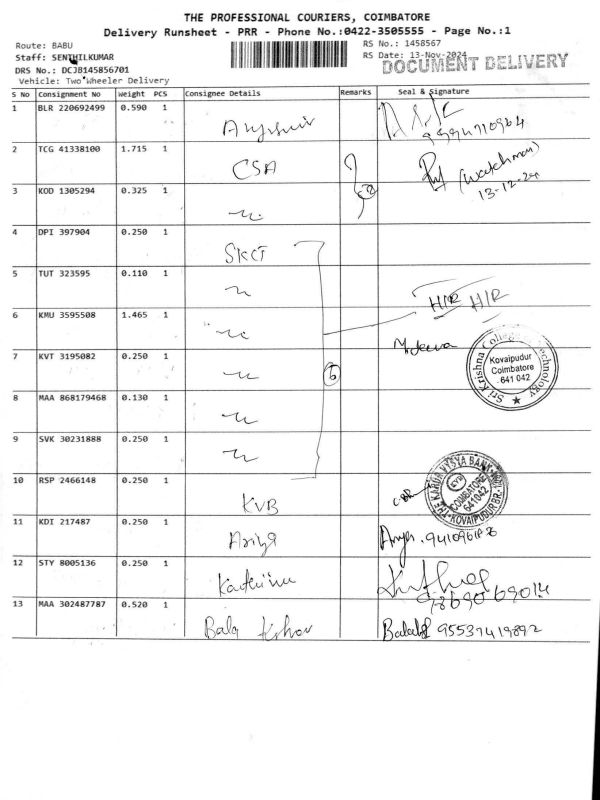 THE PROFESSIONAL COURIERS, COIMBATORE
Delivery Runsheet - PRR - Phone No.:0422-3505555 - Page No.:1
Route: BABU
Staff: SENTHILKUMAR
DRS No.: DCJB145856701
Vehicle: Two Wheeler Delivery
RS No.: 1458567
RS Date: 13-Nov-2024
DOCUMENT DELIVERY
S No Consignment No Weight PCS Consignee Details Remarks Seal & Signature
1 BLR 220692499 0.590 1
2 TCG 41338100 1.715 1 CSA (Watchman)
13-12-24
3 KOD 1305294 0.325 1
4 DPI 397904 0.250 1 SKCT
5 TUT 323595 0.110 1
H/R H/R
6 KMU 3595508 1.465 1
M. Jeeva
7 KVT 3195082 0.250 1 6
Sri Krishna College Technology
Kovaipudur
Coimbatore
641 042
8 MAA 868179468 0.130 1
9 SVK 30231888 0.250 1
10 RSP 2466148 0.250 1 KVB
THE KARUR VYSYA BANK
KVB
COIMBATORE
641042
KOVAIPUDUR BR.
11 KDI 217487 0.250 1 Ariya
12 STY 8005136 0.250 1
13 MAA 302487787 0.520 1 Bala 95537419892